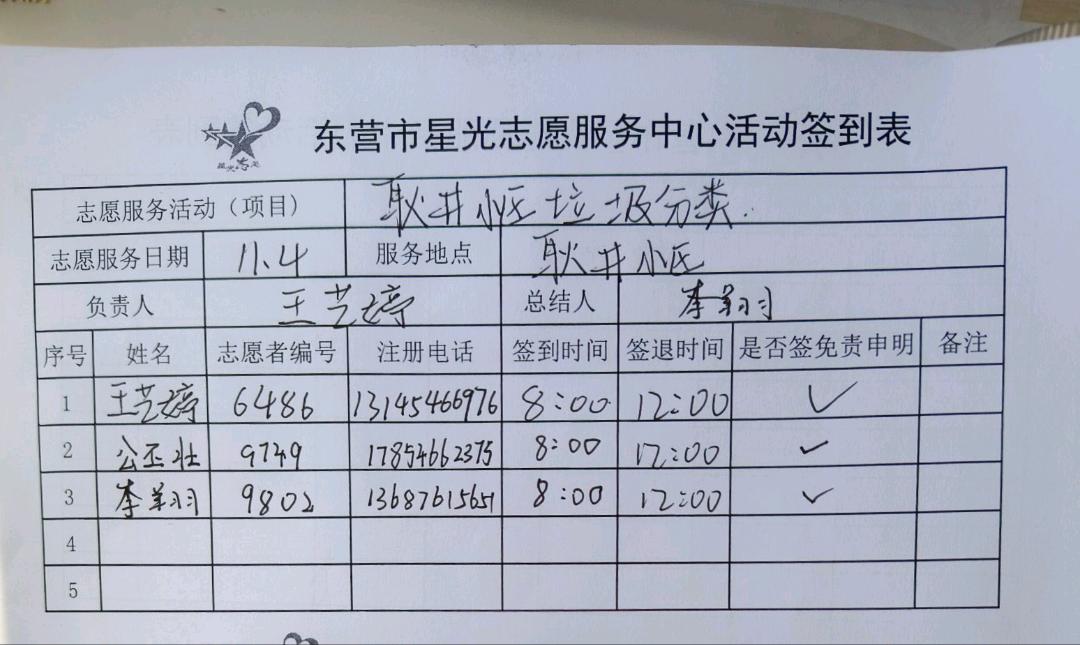 东营市星光志愿服务中心活动签到表
志愿服务活动（项目） 耿井小区垃圾分类.
志愿服务日期 11.4 服务地点 耿井小区
负责人 王艺婷 总结人 李羽
序号 姓名 志愿者编号 注册电话 签到时间 签退时间 是否签免责申明 备注
1 王艺婷 6486 13145466976 8:00 12:00 ✓
2 公丕壮 9749 17854662375 8:00 12:00 ✓
3 李羽 9802 13687615651 8:00 12:00 ✓
4
5